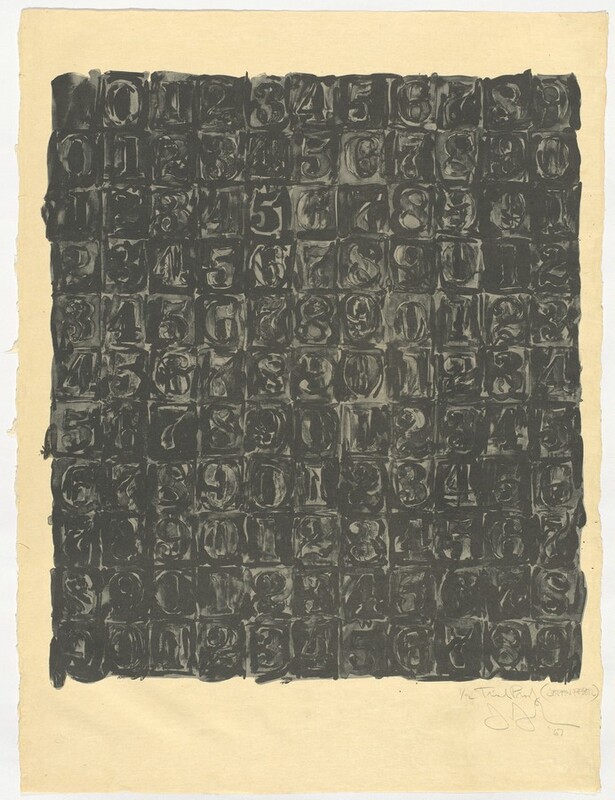 0 1 2 3 4 5 6 7 8 9
0 1 2 3 4 5 6 7 8 9 0
1 2 3 4 5 6 7 8 9 0 1
2 3 4 5 6 7 8 9 0 1 2
3 4 5 6 7 8 9 0 1 2 3
4 5 6 7 8 9 0 1 2 3 4
5 6 7 8 9 0 1 2 3 4 5
6 7 8 9 0 1 2 3 4 5 6
7 8 9 0 1 2 3 4 5 6 7
8 9 0 1 2 3 4 5 6 7 8
9 0 1 2 3 4 5 6 7 8 9
1/2 Trial Proof
'67